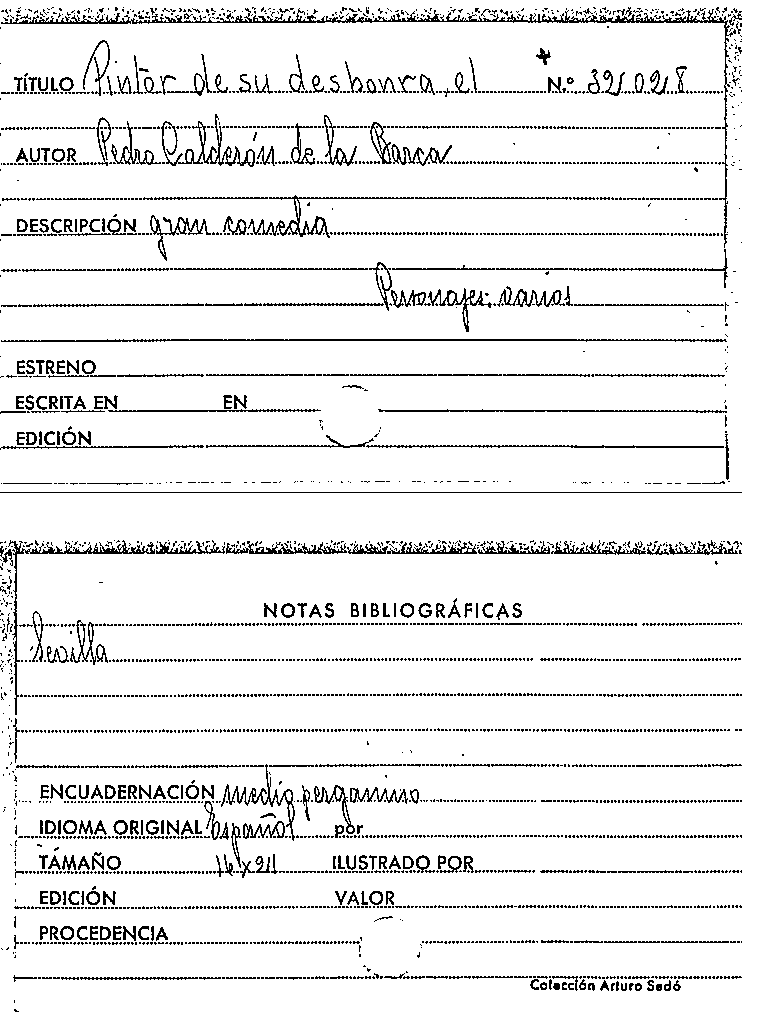 TÍTULO Pintor de su deshonra, el N.º
AUTOR Pedro Calderón de la Barca
DESCRIPCIÓN gran comedia
Personajes: varios
ESTRENO
ESCRITA EN EN
EDICIÓN
NOTAS BIBLIOGRÁFICAS
Sevilla
ENCUADERNACIÓN medio pergamino
IDIOMA ORIGINAL Español por
TAMAÑO ILUSTRADO POR
EDICIÓN VALOR
PROCEDENCIA
Colección Arturo Sedó